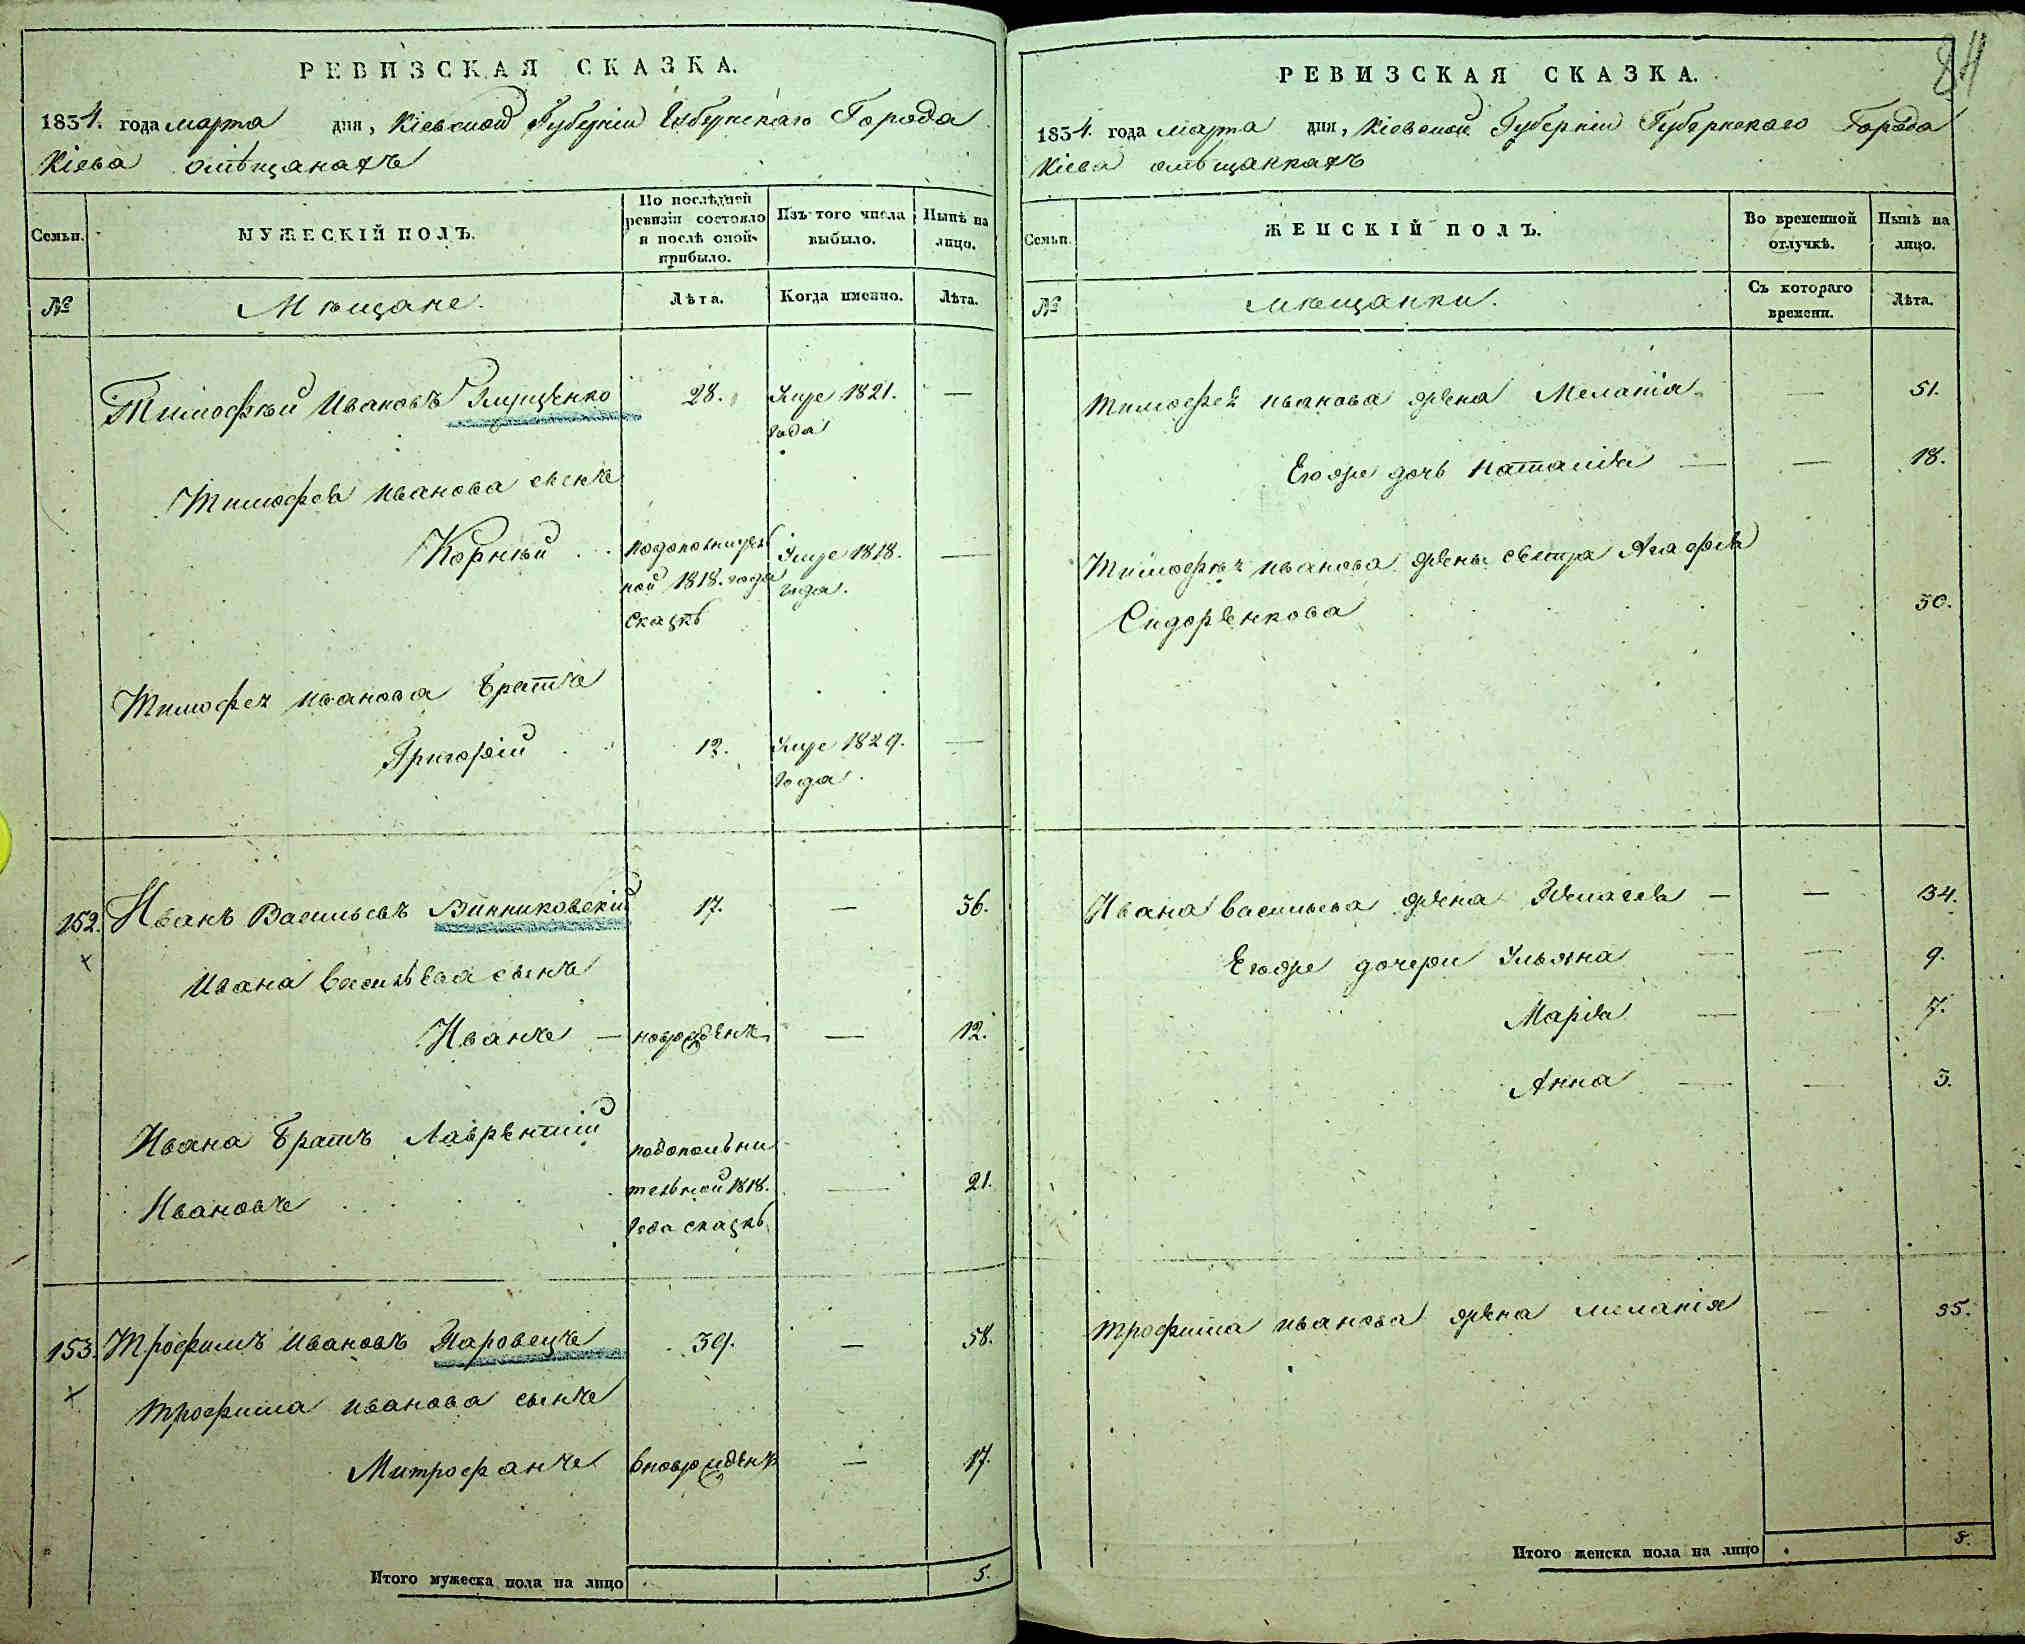 РЕВИЗСКАЯ СКАЗКА.
1834. года марта дня, Кіевской Губерніи Губернскаго Города
Кіева омѣщанахъ
Семьи.
МУЖЕСКІЙ ПОЛЪ.
По послѣдней ревизіи состояло и послѣ оной прибыло.
Изъ того числа выбыло.
Нынѣ на лицо.
№
Мѣщане.
Лѣта.
Когда именно.
Лѣта.
Тимофѣй Ивановъ 28. Умре 1821. —
года
Тимофея Иванова сынъ
Корнѣй подополнител
ной 1818. года
сказкѣ
Умре 1818. —
года.
Тимофея Иванова братъ
Григорій 12. Умре 1829. —
года.
152. Иванъ Васильевъ Винниковскій 17. — 36.
Ивана Васильева сынъ
Иванъ — новорожденъ — 12.
Ивана братъ Лаврентій
Ивановъ
подополни
тельной 1818.
года сказкѣ
— 21.
153. Трофимъ Ивановъ Паровецъ 39. — 58.
Трофима Иванова сынъ
Митрофанъ вноврожденъ — 17.
Итого мужеска пола на лицо 5.
84
РЕВИЗСКАЯ СКАЗКА.
1834. года марта дня, Кіевской Губерніи Губернскаго Города
Кіева омѣщанкахъ
Семьи.
ЖЕНСКІЙ ПОЛЪ.
Во временной отлучкѣ.
Нынѣ на лицо.
№
мѣщанки.
Съ котораго времени.
Лѣта.
Тимофея Иванова жена Меланія — 51.
Егоже дочь Наталія — — 18.
Тимофея Иванова жены сестра Агафія
Сидоренкова 30.
Ивана Васильева жена — — 34.
Егоже дочери Ульяна — — 9.
Марія — — 7.
Анна — — 3.
Трофима Иванова жена Меланія — 35.
Итого женска пола на лицо 8.